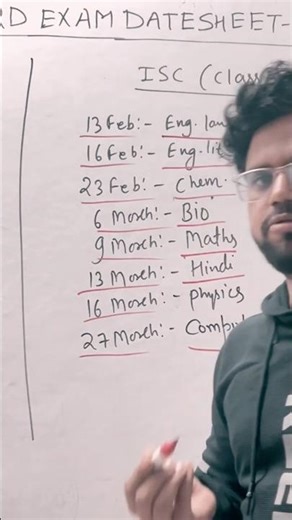 RD EXAM DATESHEET-
ISC (Class
13 Feb:- Eng. lan
16 Feb:- Eng. lit
23 Feb:- Chem.
6 March:- Bio
9 March:- Maths
13 March:- Hindi
16 March:- physics
27 March:- Comput